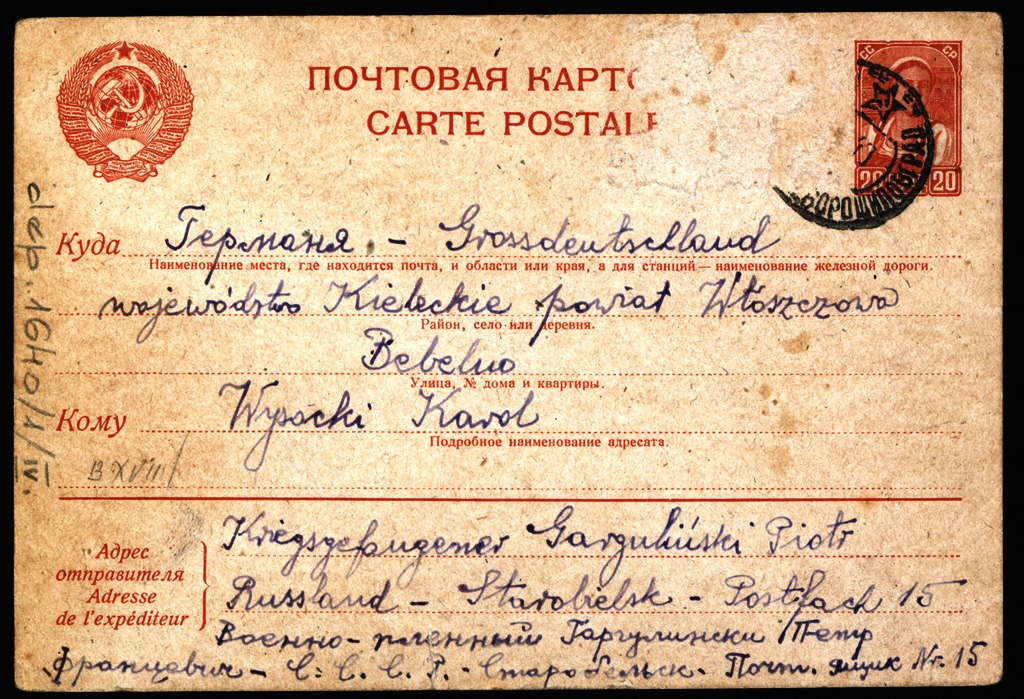 ПОЧТОВАЯ КАРТО
CARTE POSTALE
СС СР
20 20
ВОРОШИЛОВГРАД
Куда Германя - Grossdeutschland
Наименование места, где находится почта, и области или края, а для станций — наименование железной дороги.
województwo Kieleckie powiat Włoszczowa
Район, село или деревня.
Bebelno
Улица, № дома и квартиры.
Кому Wysocki Karol
Подробное наименование адресата.
B XVIII/
dep. 1640/1/IV.
Адрес
отправителя
Adresse
de l'expéditeur
Kriegsgefangener Garguliński Piotr
Russland - Starobielsk - Postfach 15
Военно-пленный Гаргулински Петр
Францевич - С.С.С.Р. - Старобельск - Почт. ящик Nr. 15